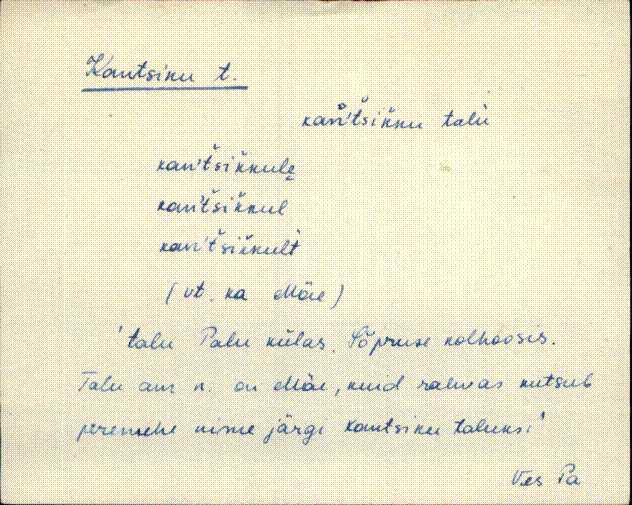 Kantsiku t.
kan̆'t̆šik̆ku talù
kan't̆šik̆kulę
kan't̆šik̆kul
kan't̆šik̆kult̀
(vt. ka Mäe)
'talu Palu külas, Sõpruse kolhoosis.
Talu am n. on Mäe, kuid rahvas kutsub
peremehe nime järgi kantsiku taluks.'
Ves Pa